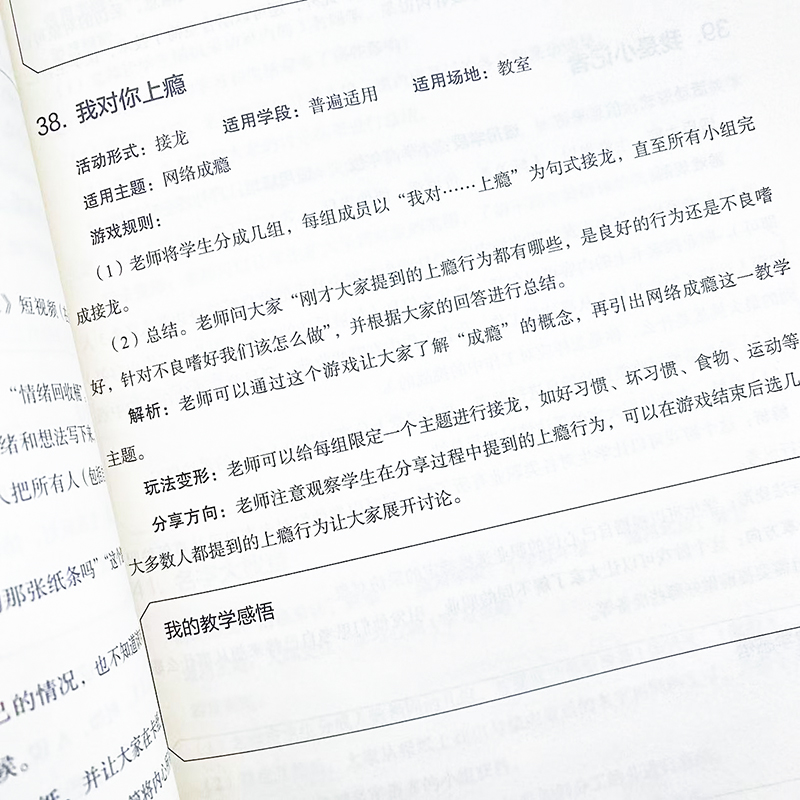 38. 我对你上瘾
活动形式：接龙 适用学段：普遍适用 适用场地：教室
适用主题：网络成瘾
游戏规则：
（1）老师将学生分成几组，每组成员以“我对……上瘾”为句式接龙，直至所有小组完
成接龙。
（2）总结。老师问大家“刚才大家提到的上瘾行为都有哪些，是良好的行为还是不良嗜
好，针对不良嗜好我们该怎么做”，并根据大家的回答进行总结。
解析：老师可以通过这个游戏让大家了解“成瘾”的概念，再引出网络成瘾这一教学
主题。
玩法变形：老师可以给每组限定一个主题进行接龙，如好习惯、坏习惯、食物、运动等
分享方向：老师注意观察学生在分享过程中提到的上瘾行为，可以在游戏结束后选几
大多数人都提到的上瘾行为让大家展开讨论。
我的教学感悟
》短视频
“情绪回收
绪和想法写下来
人把所有人（包
那张纸条吗”
己的情况，也不知道
候。
并让大家在